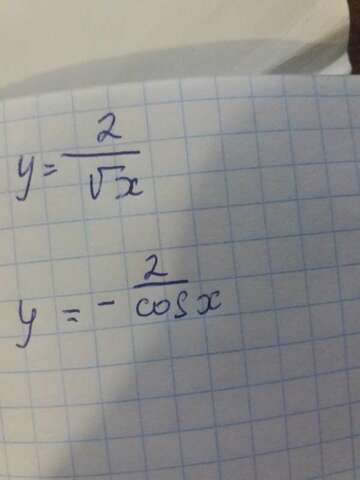 y = 2/√x
y = - 2/cos x